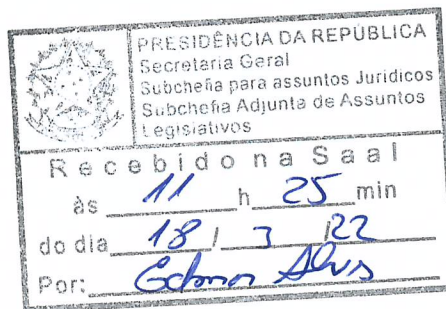 PRESIDÊNCIA DA REPÚBLICA
Secretaria Geral
Subchefia para assuntos Jurídicos
Subchefia Adjunta de Assuntos
Legislativos
Recebido na Saal
às 11 h 25 min
do dia 18 / 3 / 22
Por: Alves